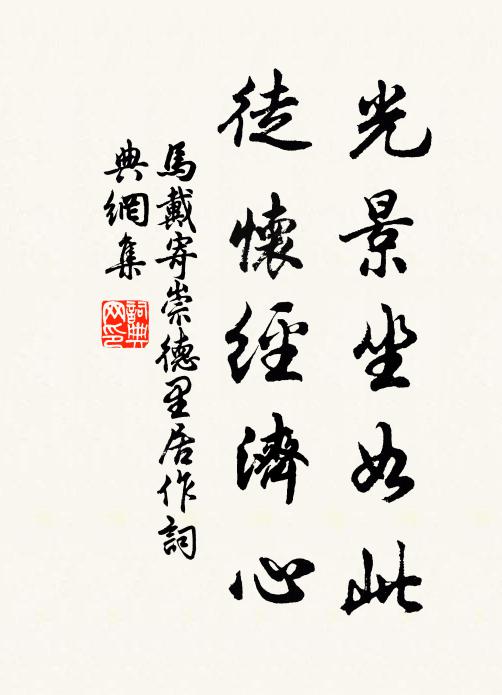 光景坐如此
徒懷經濟心
馬戴寄崇德里居作詞
典網集
詞典
网印